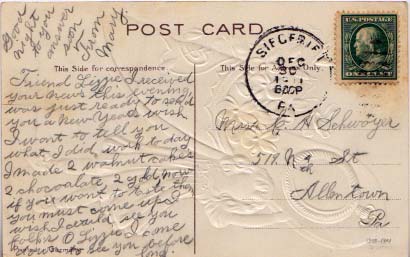 Good
night to you
answer
soon
From
Mary.
POST CARD
This Side for correspondence.
This Side for Address Only.
U.S. POSTAGE
ONE CENT
SIEGFRIED
DEC
30
6 00P
PA.
Friend Lizzie I received
your card this evening
was just ready to send
you a New Years wish
I want to tell you
what I did work today
I made 2 walnut cakes
2 chocolate 2 yellow now
if you want to taste them
you must come up I
wish I could see you
folks O Lizzie I come
to see you before
long.
E. H. Schwoyer
519 N St
Allentown
Pa